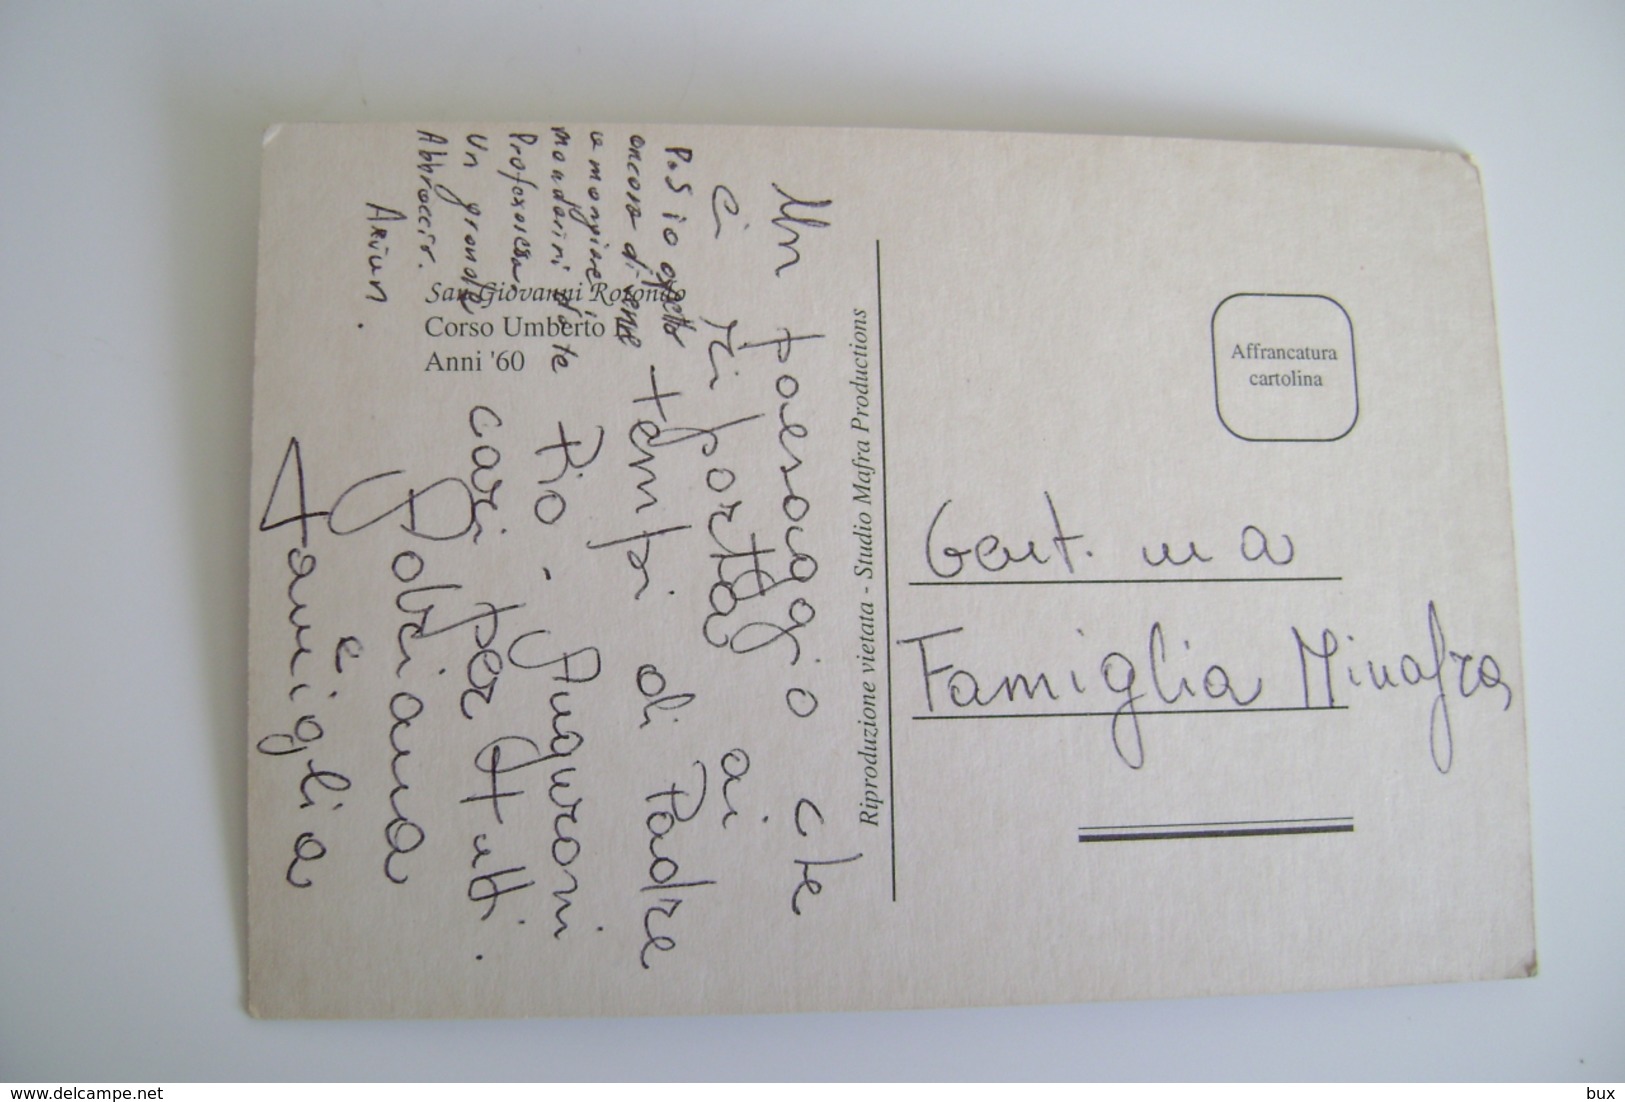 Un paesaggio che
ci riporta ai
tempi di Padre
Pio - Auguroni
cari per tutti.
Fabiana
e
famiglia
P.S io aspetto
ancora di venire
a mangiare i
mandarini date
Professoressa,
Un grande
Abbraccio.
Arjun.
San Giovanni Rotondo
Corso Umberto I
Anni '60
Riproduzione vietata - Studio Mafra Productions
Affrancatura
cartolina
Gent.ma
Famiglia Minafra
delcampe.net
bux